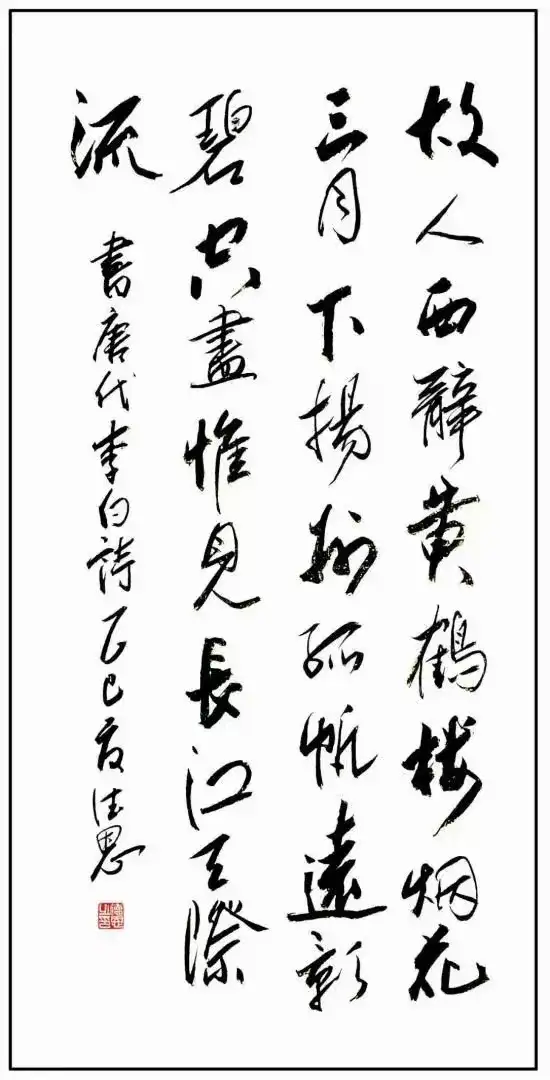 故人西辭黄鶴樓烟花
三月下揚州孤帆遠影
碧空盡惟見長江天際
流
書唐代李白詩乙巳夏德思